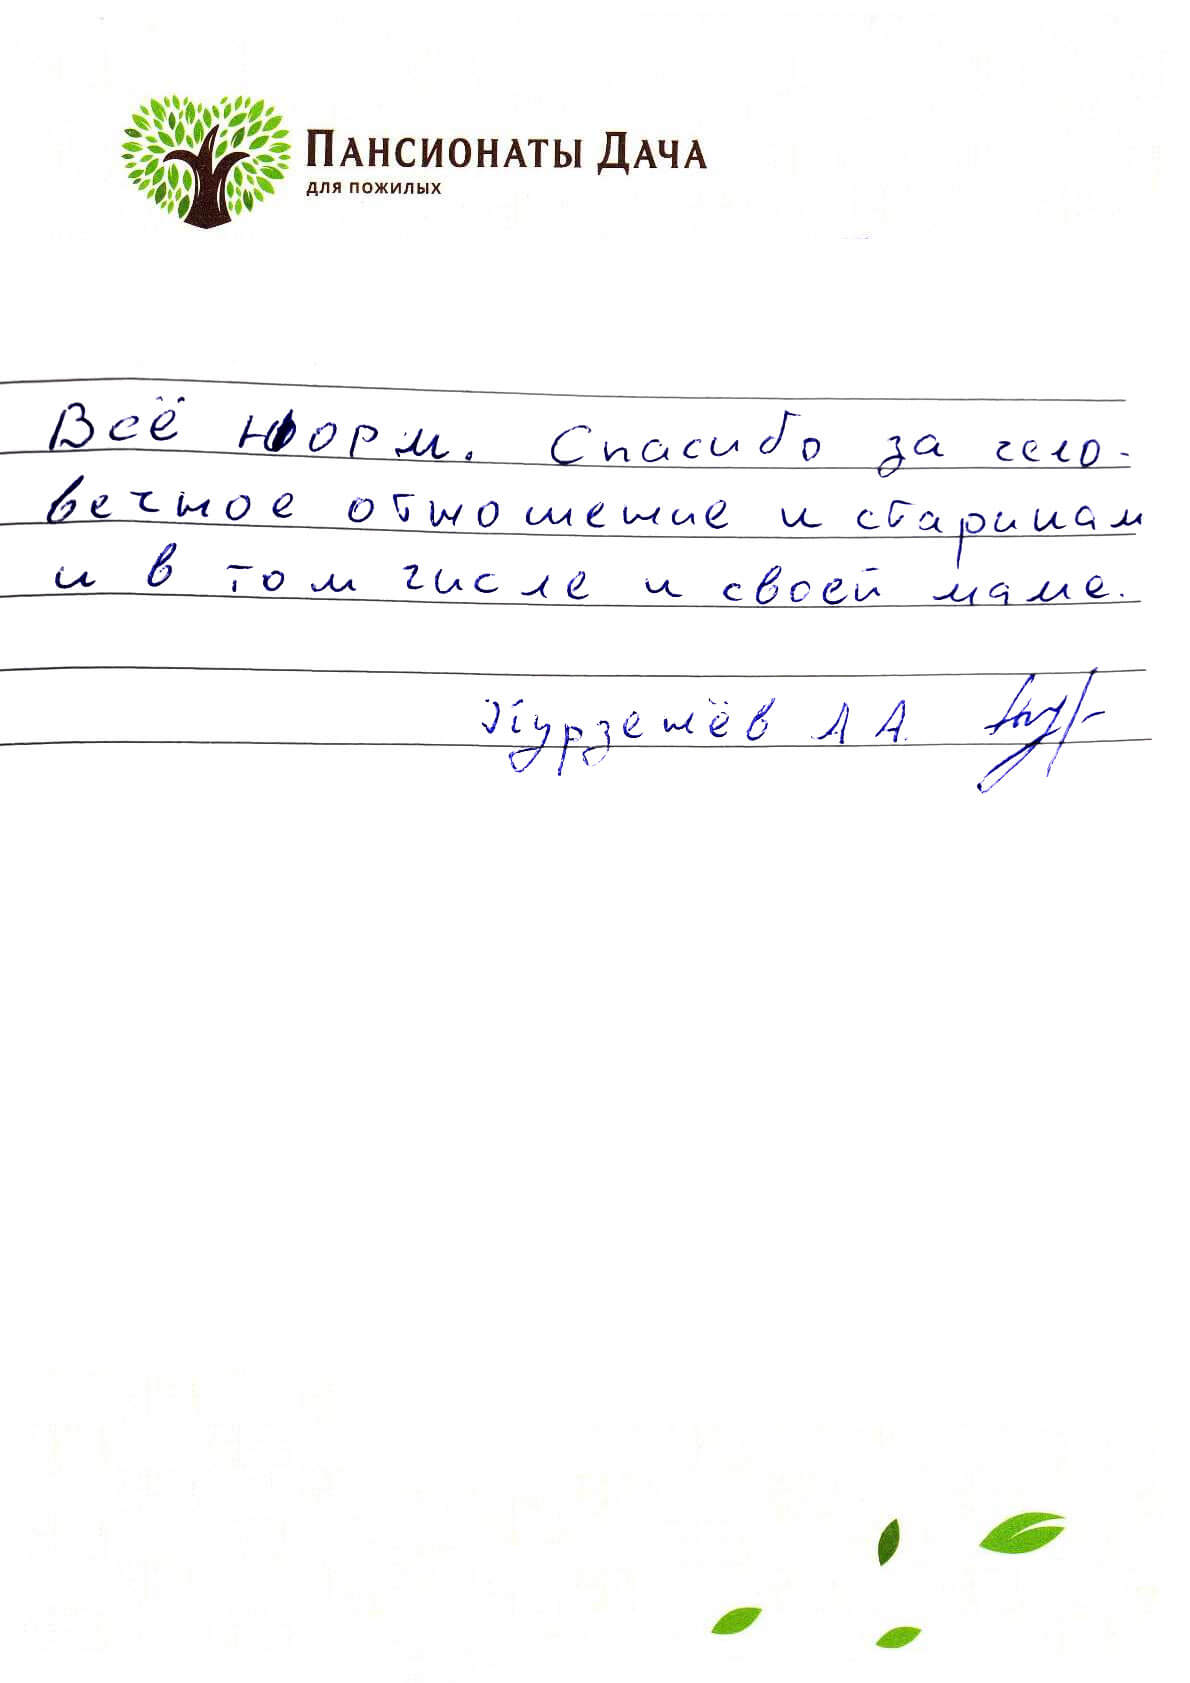 ПАНСИОНАТЫ ДАЧА
ДЛЯ ПОЖИЛЫХ
Всё норм. Спасибо за чело-
вечное отношение и старикам
и в том числе и своей маме.
Курзенёв Л А.